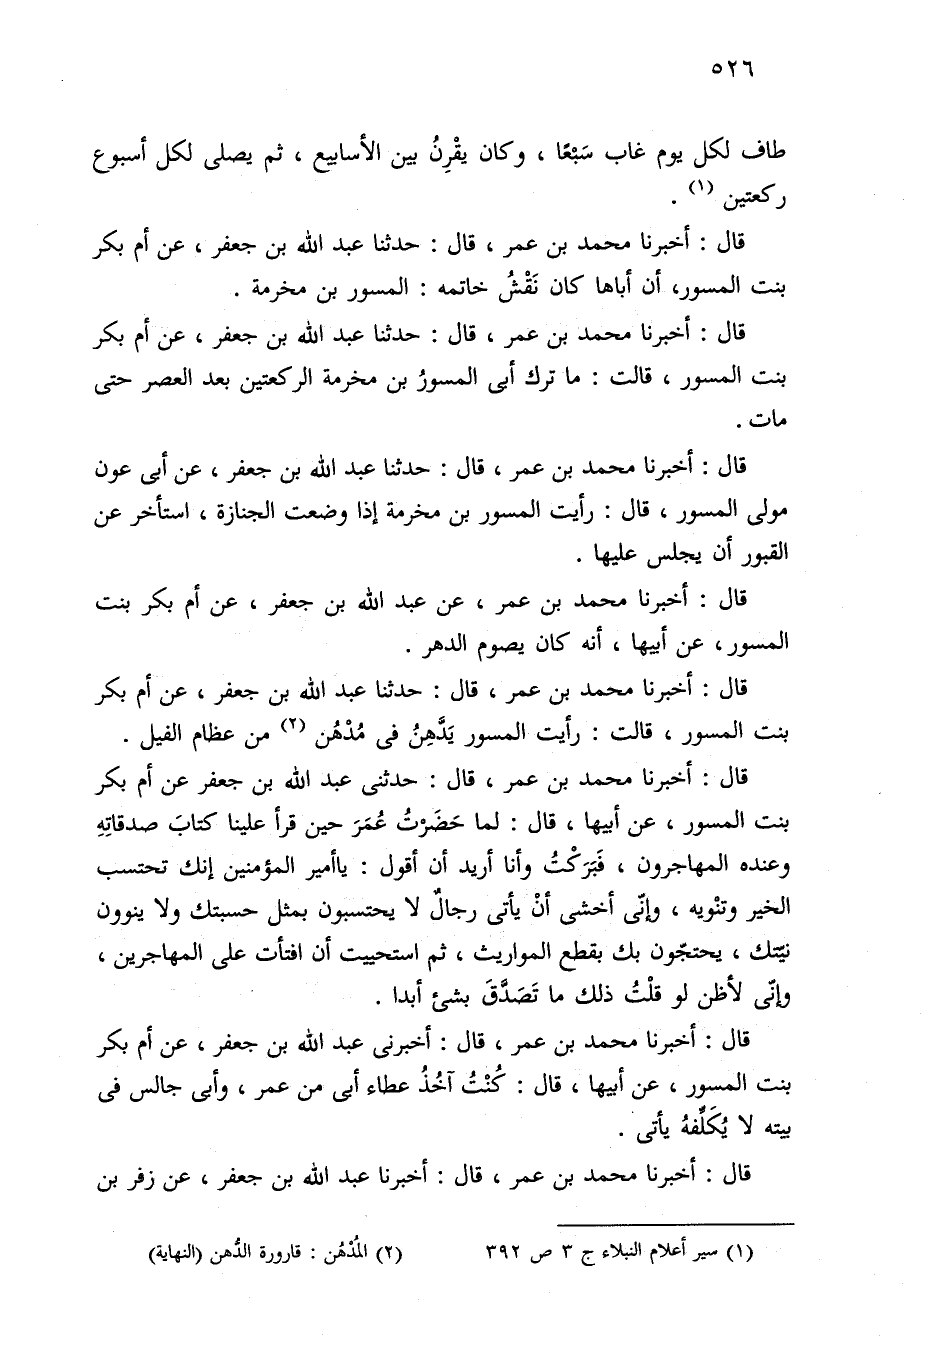 ٥٢٦
طاف لكل يوم غاب سَبْعًا ، وكان يقْرِنُ بين الأسابيع ، ثم يصلى لكل أسبوع
ركعتين (١) .
قال : أخبرنا محمد بن عمر ، قال : حدثنا عبد الله بن جعفر ، عن أم بكر
بنت المسور، أن أباها كان نَقْشُ خاتمه : المسور بن مخرمة .
قال : أخبرنا محمد بن عمر ، قال : حدثنا عبد الله بن جعفر ، عن أم بكر
بنت المسور ، قالت : ما ترك أبى المسورُ بن مخرمة الركعتين بعد العصر حتى
مات .
قال : أخبرنا محمد بن عمر ، قال : حدثنا عبد الله بن جعفر ، عن أبى عون
مولى المسور ، قال : رأيت المسور بن مخرمة إذا وضعت الجنازة ، استأخر عن
القبور أن يجلس عليها .
قال : أخبرنا محمد بن عمر ، عن عبد الله بن جعفر ، عن أم بكر بنت
المسور، عن أبيها ، أنه كان يصوم الدهر .
قال : أخبرنا محمد بن عمر ، قال : حدثنا عبد الله بن جعفر ، عن أم بكر
بنت المسور ، قالت : رأيت المسور يَدَّهِنُ فى مُدْهُن (٢) من عظام الفيل .
قال : أخبرنا محمد بن عمر ، قال : حدثنى عبد الله بن جعفر عن أم بكر
بنت المسور ، عن أبيها ، قال : لما حَضَرْتُ عُمَرَ حين قرأ علينا كتابَ صدقاتِهِ
وعنده المهاجرون ، فَبَرَكْتُ وأنا أريد أن أقول : ياأمير المؤمنين إنك تحتسب
الخير وتنْويه ، وإنّى أخشى أنْ يأتى رجالٌ لا يحتسبون بمثل حسبتك ولا ينوون
نيّتك ، يحتجّون بك بقطع المواريث ، ثم استحييت أن افتأت على المهاجرين ،
وإنّى لأظن لو قلْتُ ذلك ما تَصَدَّقَ بشئ أبدا .
قال : أخبرنا محمد بن عمر ، قال : أخبرنى عبد الله بن جعفر ، عن أم بكر
بنت المسور ، عن أبيها ، قال : كُنْتُ آخُذُ عطاء أبى من عمر ، وأبى جالس فى
بيته لا يُكَلِّفهُ يأتى .
قال : أخبرنا محمد بن عمر ، قال : أخبرنا عبد الله بن جعفر ، عن زفر بن
(١) سير أعلام النبلاء ج ٣ ص ٣٩٢ (٢) المُدْهُن : قارورة الدُّهن (النهاية)